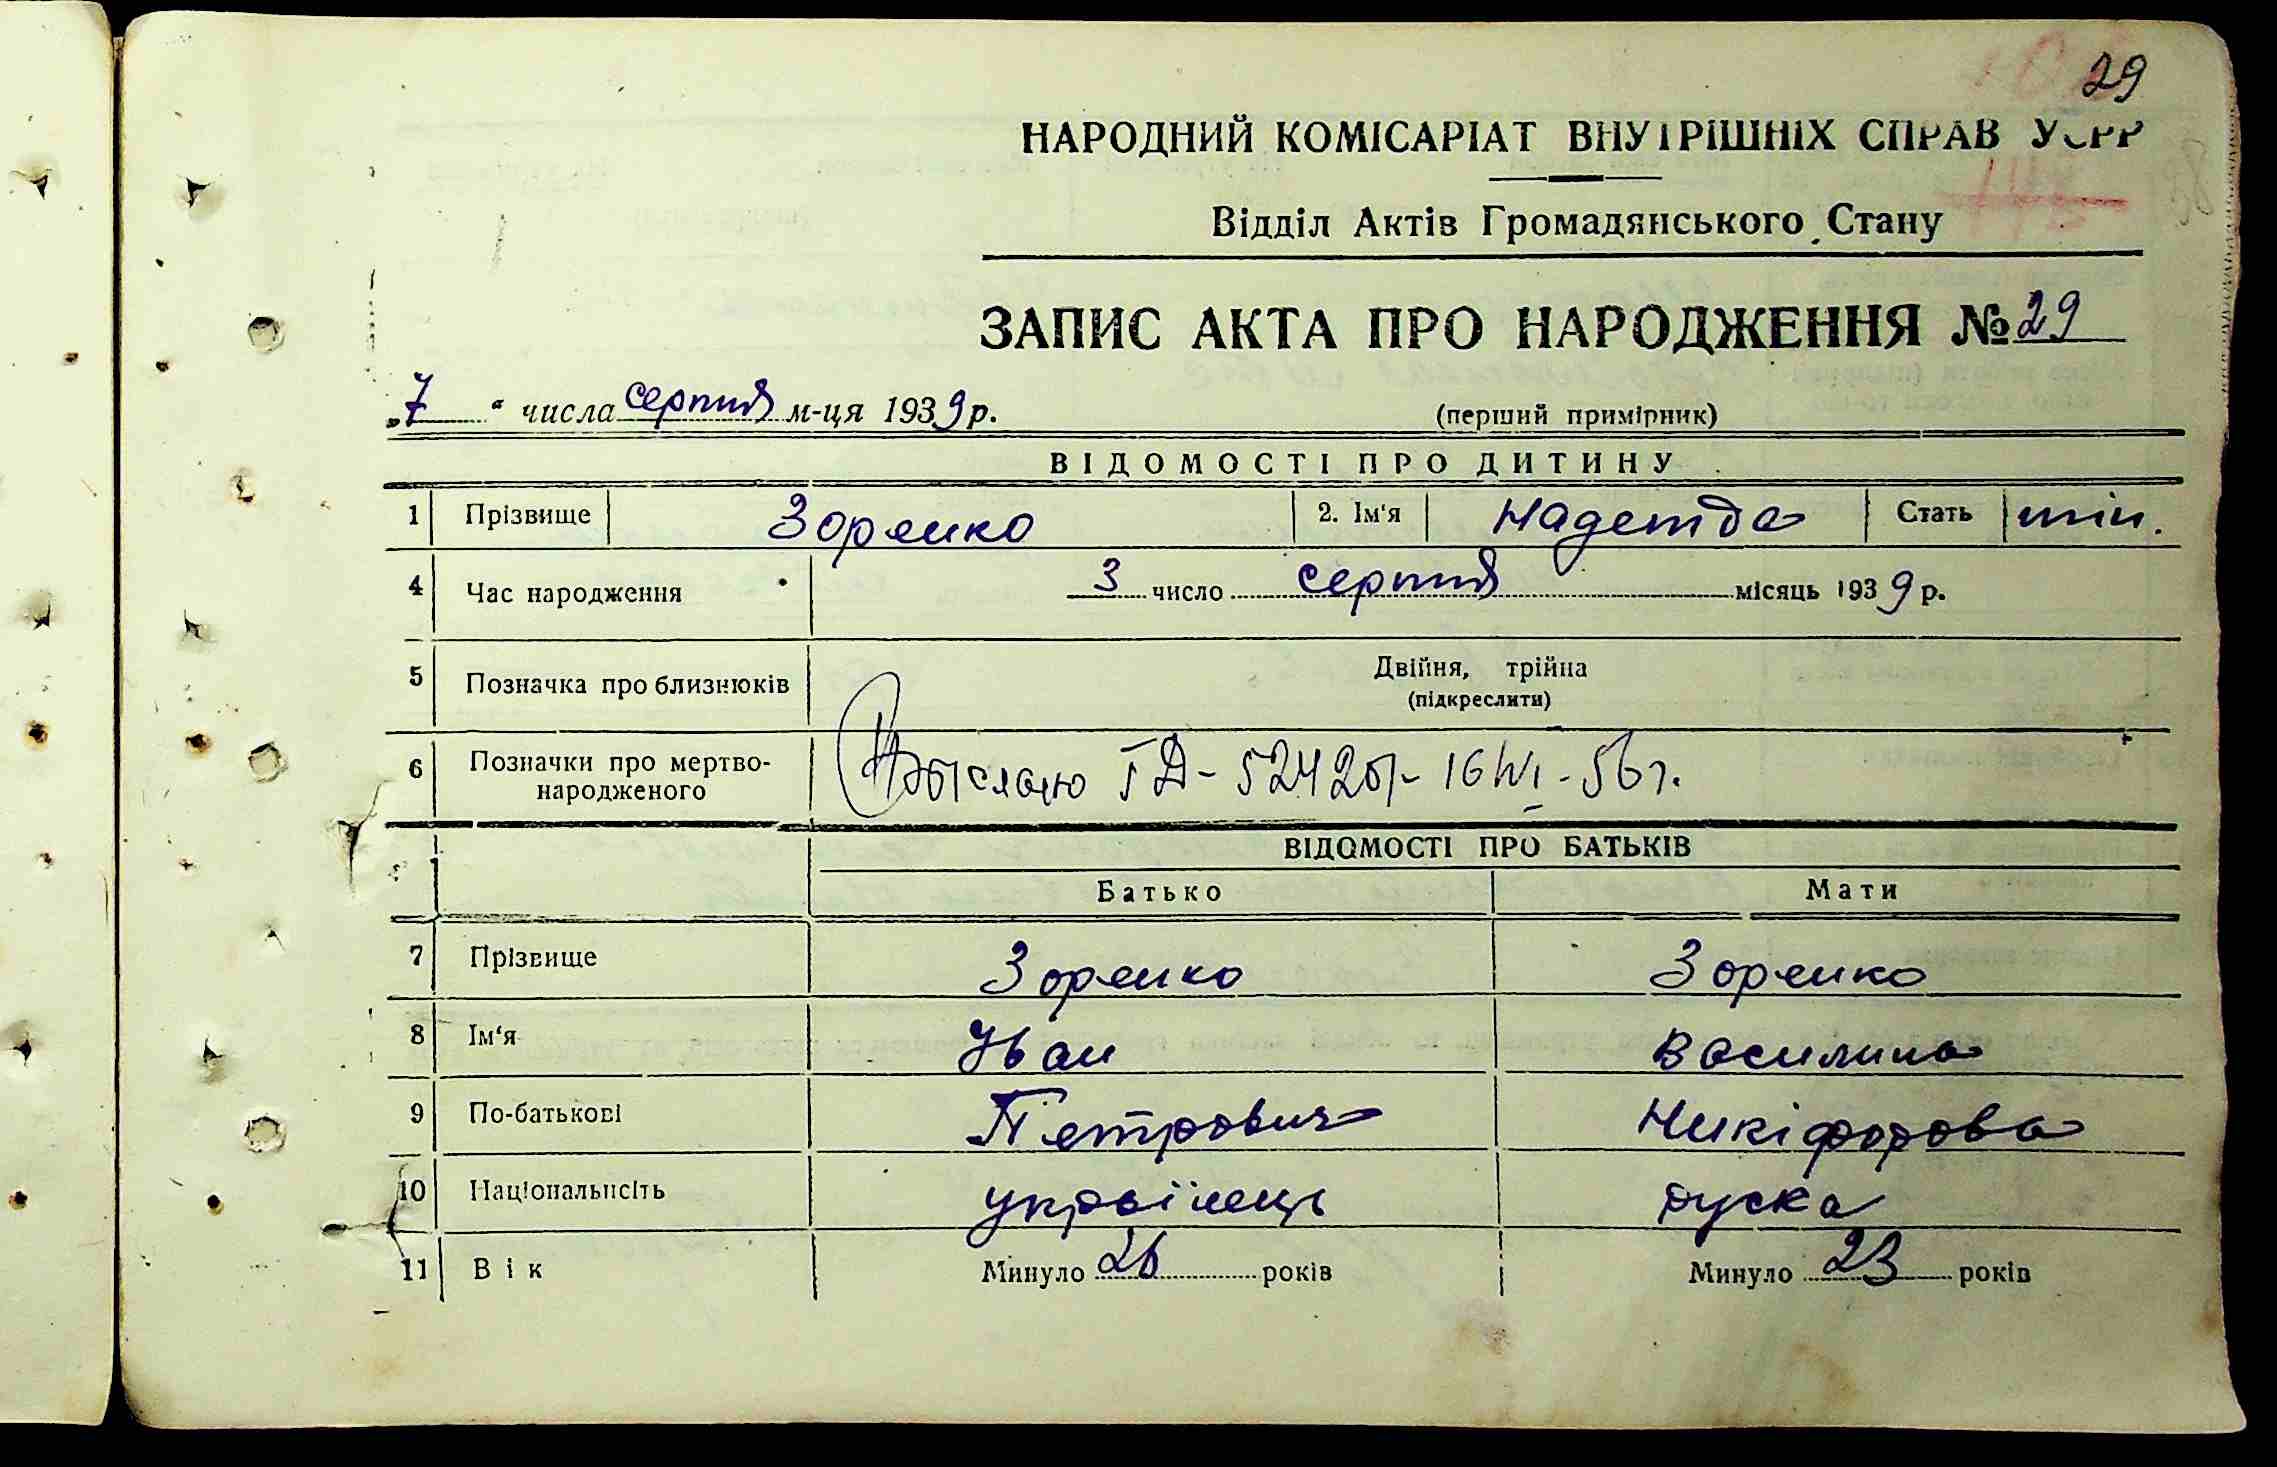 29
НАРОДНИЙ КОМІСАРІАТ ВНУТРІШНІХ СПРАВ УСРР
Відділ Актів Громадянського Стану
ЗАПИС АКТА ПРО НАРОДЖЕННЯ № 29
„7“ числа серпня м-ця 1939 р.
(перший примірник)
ВІДОМОСТІ ПРО ДИТИНУ
1 Прізвище Зоренко 2. Ім'я Надежда Стать жін.
4 Час народження 3 число серпня місяць 1939 р.
5 Позначка про близнюків Двійня, трійна
(підкреслити)
6 Позначки про мертво-
народженого
ГД- 524261- 16/VI-56 г.
ВІДОМОСТІ ПРО БАТЬКІВ
Батько Мати
7 Прізвище Зоренко Зоренко
8 Ім'я Іван Василина
9 По-батькові Петрович Никіфорова
10 Національність українець руска
11 Вік Минуло 26 років Минуло 23 років